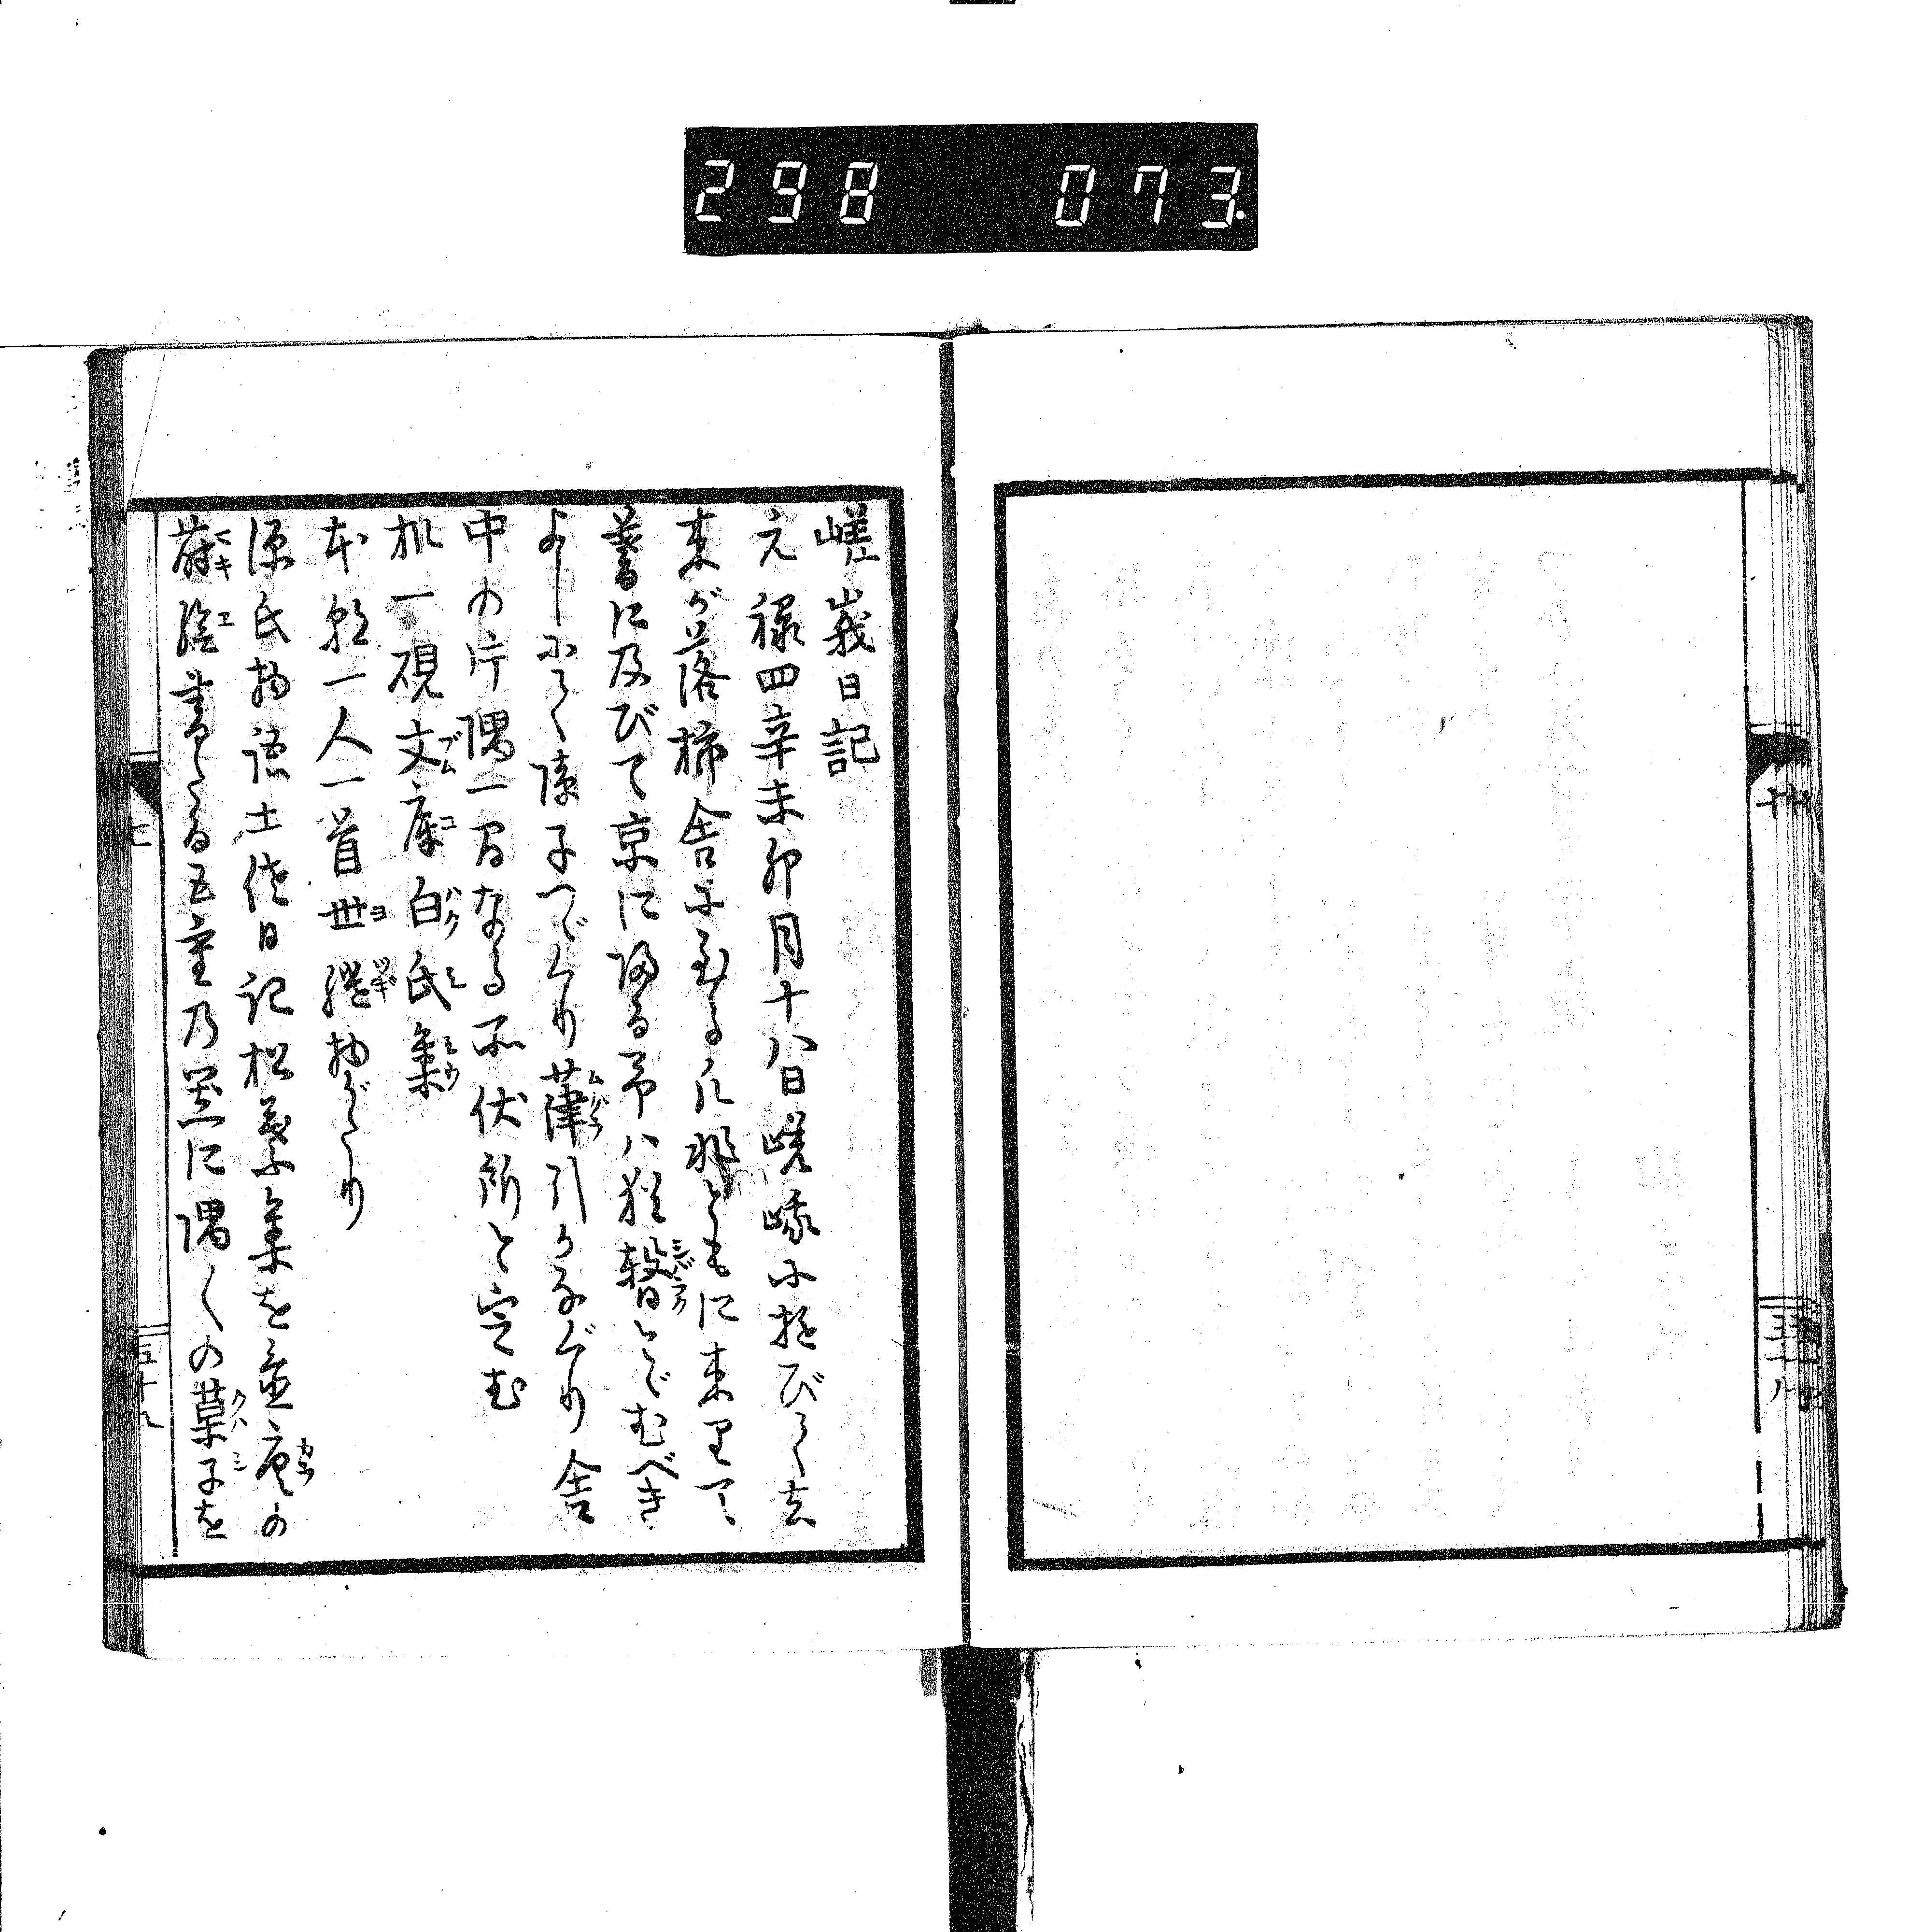 298 073.
嵯峩日記
元禄四辛未卯月十八日嵯峨に遊びて去
来が落柿舎に至る凡兆ともに来りて
暮に及びて京に帰る予ハ猶暫とゞむべき
よしにて障子つゞくり葎引かなぐり舎
中の片隅一間なる所伏所と定む
机一硯文庫白氏集
本朝一人一首世継物がたり
源氏物語土佐日記松葉集を並唐の
蒔絵書たる五重の器に隅〱の菓子を